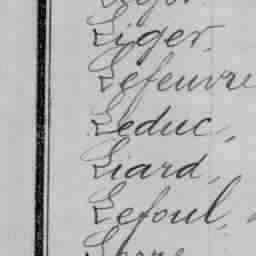 Liger.
Lefeuvre
Leduc,
Liard,
Lefoul,